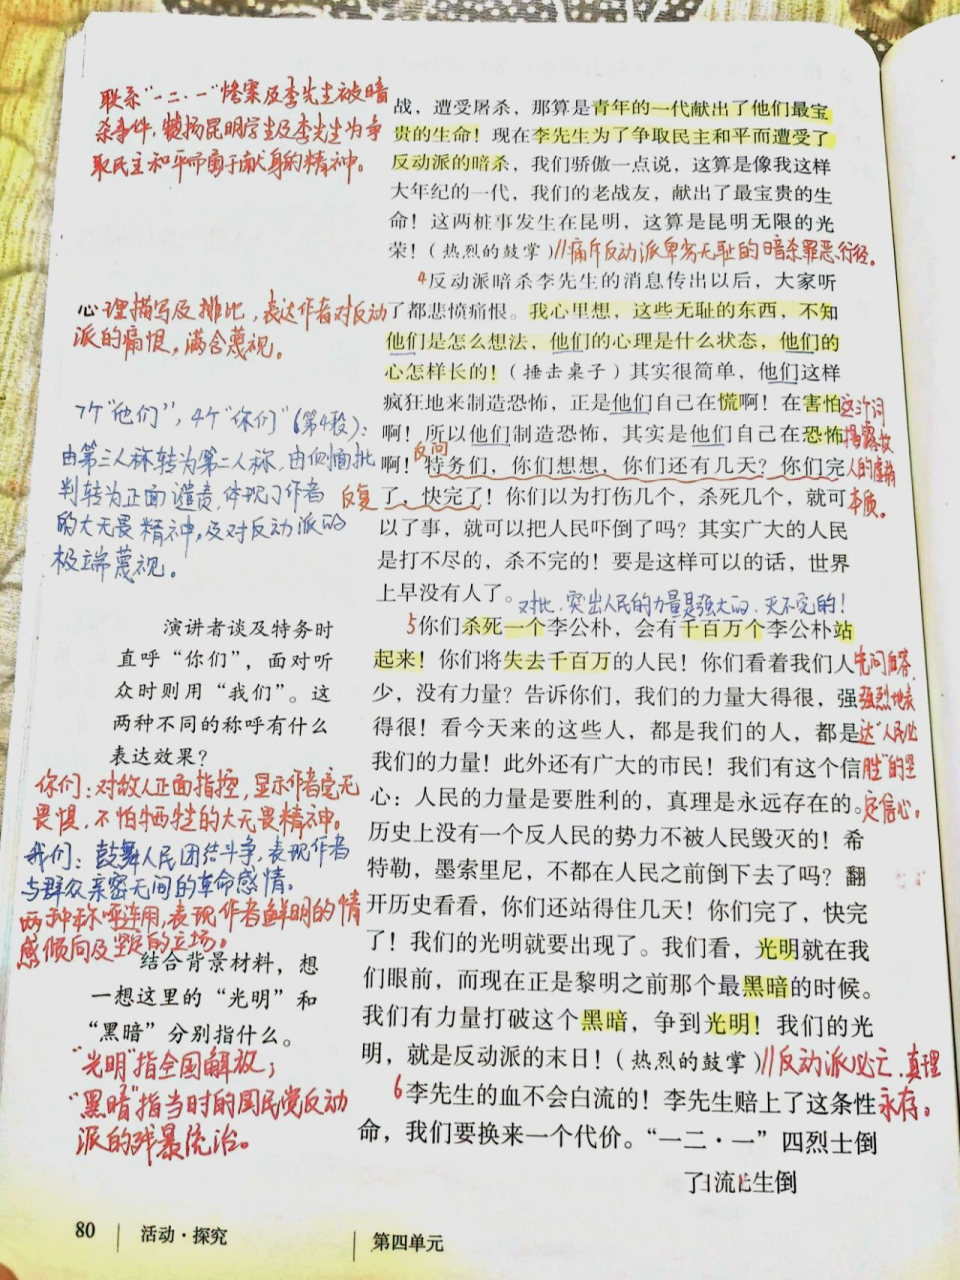 联系“一二·一”惨案及李先生被暗
杀事件，赞扬昆明学生及李先生为争
取民主和平而勇于献身的精神。
战，遭受屠杀，那算是青年的一代献出了他们最宝
贵的生命！现在李先生为了争取民主和平而遭受了
反动派的暗杀，我们骄傲一点说，这算是像我这样
大年纪的一代，我们的老战友，献出了最宝贵的生
命！这两桩事发生在昆明，这算是昆明无限的光
荣！（热烈的鼓掌）//痛斥反动派卑劣无耻的暗杀罪恶行径。
4反动派暗杀李先生的消息传出以后，大家听
了都悲愤痛恨。我心里想，这些无耻的东西，不知
他们是怎么想法，他们的心理是什么状态，他们的
心怎样长的！（捶击桌子）其实很简单，他们这样
疯狂地来制造恐怖，正是他们自己在慌啊！在害怕
啊！所以他们制造恐怖，其实是他们自己在恐怖
啊！特务们，你们想想，你们还有几天？你们完
了，快完了！你们以为打伤几个，杀死几个，就可
以了事，就可以把人民吓倒了吗？其实广大的人民
是打不尽的，杀不完的！要是这样可以的话，世界
上早没有人了。对比，突出人民的力量是强大的、灭不完的！
心理描写及排比，表达作者对反动
派的痛恨，满含蔑视。
7个“他们”，4个“你们”（第4段）：
由第三人称转为第二人称，由侧面批
判转为正面谴责，体现了作者
的大无畏精神，及对反动派的
极端蔑视。
反问
反复
这个词
揭露敌
人的虚弱
本质。
演讲者谈及特务时
直呼“你们”，面对听
众时则用“我们”。这
两种不同的称呼有什么
表达效果？
你们：对敌人正面指控，显示作者毫无
畏惧，不怕牺牲的大无畏精神。
我们：鼓舞人民团结斗争，表现作者
与群众亲密无间的革命感情。
两种称呼连用，表现作者鲜明的情
感倾向及坚定的立场。
结合背景材料，想
一想这里的“光明”和
“黑暗”分别指什么。
“光明”指全国解放；
“黑暗”指当时的国民党反动
派的残暴统治。
5你们杀死一个李公朴，会有千百万个李公朴站
起来！你们将失去千百万的人民！你们看着我们人
少，没有力量？告诉你们，我们的力量大得很，强
得很！看今天来的这些人，都是我们的人，都是
我们的力量！此外还有广大的市民！我们有这个信
心：人民的力量是要胜利的，真理是永远存在的。
历史上没有一个反人民的势力不被人民毁灭的！希
特勒，墨索里尼，不都在人民之前倒下去了吗？翻
开历史看看，你们还站得住几天！你们完了，快完
了！我们的光明就要出现了。我们看，光明就在我
们眼前，而现在正是黎明之前那个最黑暗的时候。
我们有力量打破这个黑暗，争到光明！我们的光
明，就是反动派的末日！（热烈的鼓掌）//反动派必亡，真理
永存。
先问自答，
强烈地表
达“人民必
胜”的坚
定信心。
6李先生的血不会白流的！李先生赔上了这条性
命，我们要换来一个代价。“一二·一”四烈士倒
80
活动·探究
第四单元